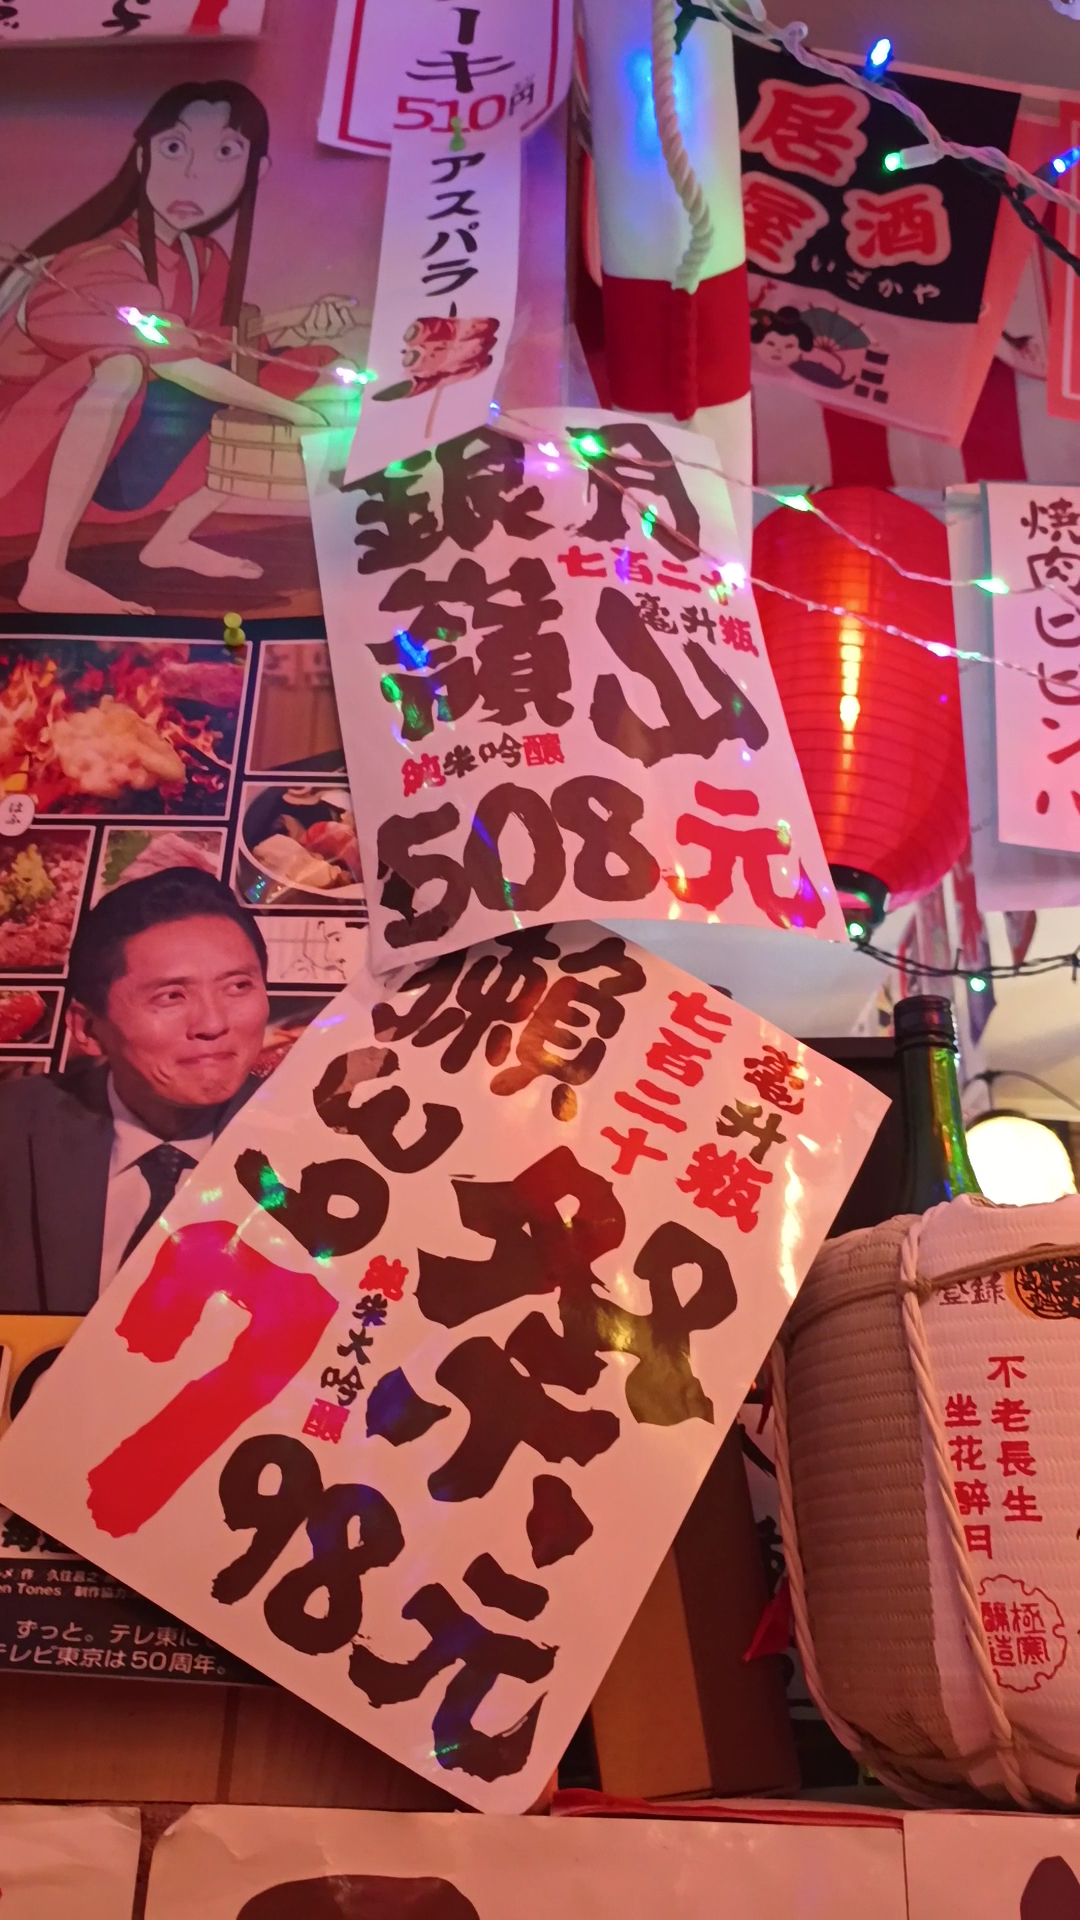 ーキ
510円
アスパラ
居酒
屋
いざかや
銀月
嶺山
七百二十
毫升瓶
純米吟醸
508元
焼肉ビビンバ
はふ
獺祭
39
七百二十
毫升瓶
純米大吟醸
798元
登錄
不老長生
坐花醉日
極寒
醸造
作 久住昌之
en Tones 制作協力
ずっと。テレ東に
テレビ東京は50周年。